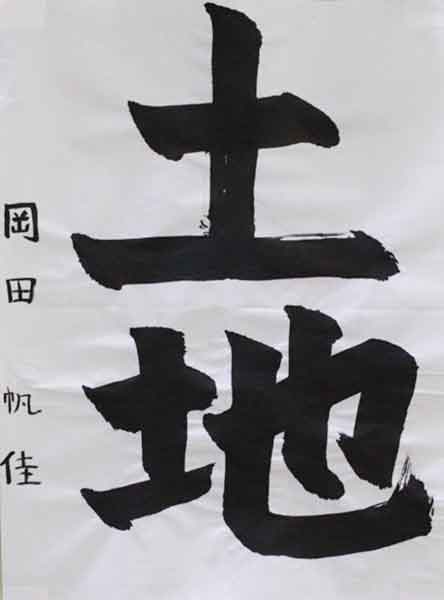 土地
岡田帆佳